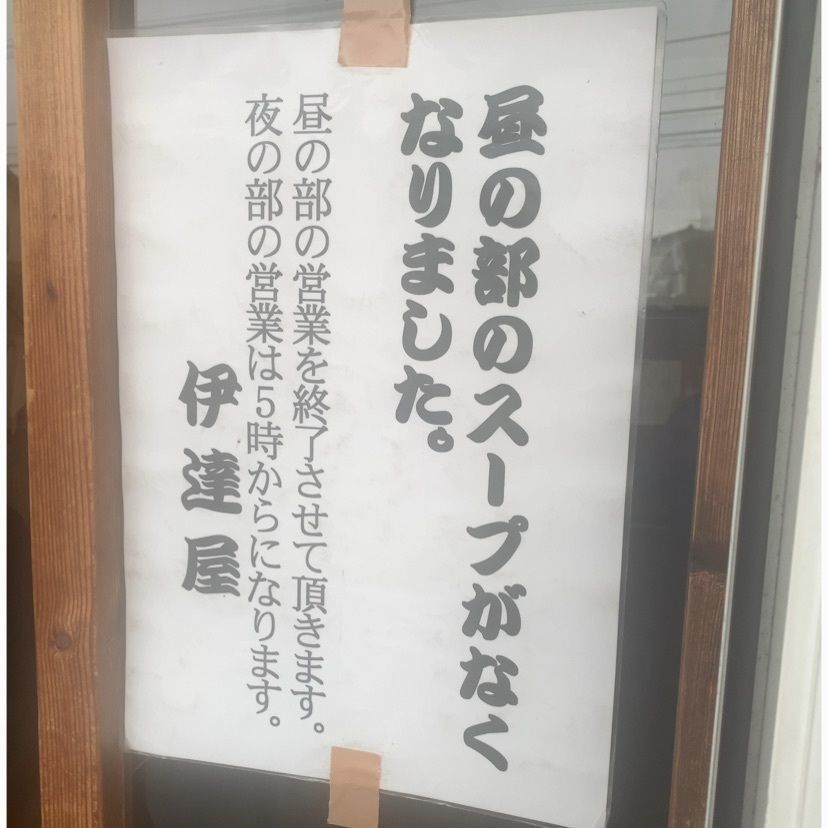 昼の部のスープがなく
なりました。
昼の部の営業を終了させて頂きます。
夜の部の営業は5時からになります。
伊達屋